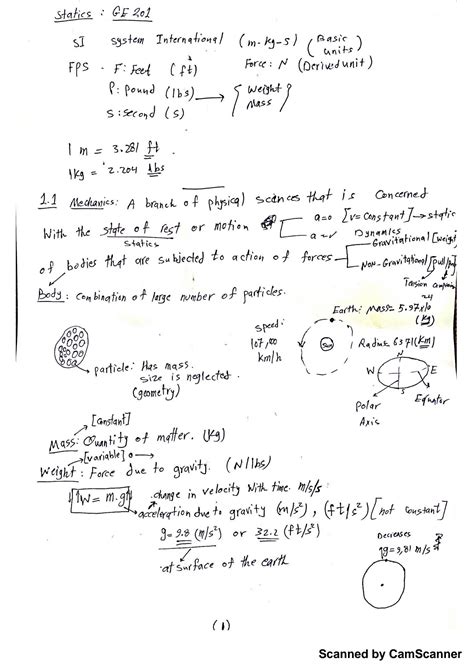 Statics : GE 201
SI System International (m-kg-s) (Basic units)
FPS - F: Feet (ft) Force: N (Derived unit)
P: pound (lbs) → { Weight Mass }
S: second (s)
1 m = 3.281 ft.
1kg = 2.204 lbs
1.1 Mechanics: A branch of physical sciences that is concerned
With the state of rest or motion a=0 [v=constant] → static
statics a=✓ Dynamics
of bodies that are subjected to action of forces Gravitational [weight
Non-Gravitational [pull/
Tension
Body: combination of large number of particles.
Earth: Mass= 5.97x10 24 (kg)
speed: 107,000 km/h
Sun
Raduis 6371 (km)
particle: Has mass.
size is neglected.
(geometry)
N
W E
S
Polar Axis
Equator
[constant]
Mass: Quantity of matter. (kg)
[variable]
Weight: Force due to gravity. (N/lbs)
W = m.g change in velocity with time. m/s/s
acceleration due to gravity (m/s²), (ft/s²) [not constant]
g = 9.8 (m/s²) or 32.2 (ft/s²)
at surface of the earth
Decreases
g=9,81 m/s²
(1)
Scanned by CamScanner